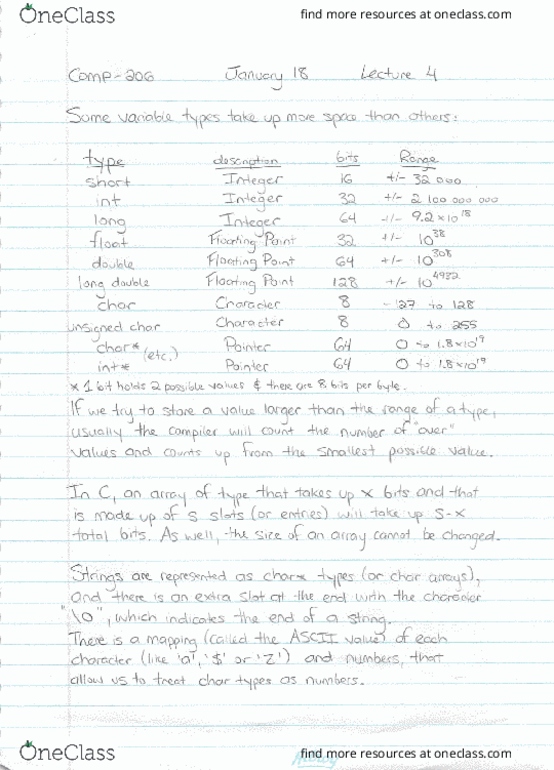 OneClass find more resources at oneclass.com
Comp-206 January 18 Lecture 4
Some variable types take up more space than others:
type description bits Range
short Integer 16 +/- 32 000
int Integer 32 +/- 2 100 000 000
long Integer 64 +/- 9.2×10^18
float Floating Point 32 +/- 10^38
double Floating Point 64 +/- 10^308
long double Floating Point 128 +/- 10^4932
char Character 8 -127 to 128
unsigned char Character 8 0 to 255
char* (etc.) Pointer 64 0 to 1.8×10^19
int* Pointer 64 0 to 1.8×10^19
* 1 bit holds 2 possible values & there are 8 bits per byte.
If we try to store a value larger than the range of a type,
usually the compiler will count the number of "over"
values and counts up from the smallest possible value.
In C, an array of type that takes up x bits and that
is made up of s slots (or entries) will take up s·x
total bits. As well, the size of an array cannot be changed.
Strings are represented as char* types (or char arrays),
and there is an extra slot at the end with the character
"\0", which indicates the end of a string.
There is a mapping (called the ASCII value) of each
character (like 'a', '$' or 'Z') and numbers, that
allow us to treat char types as numbers.
OneClass find more resources at oneclass.com